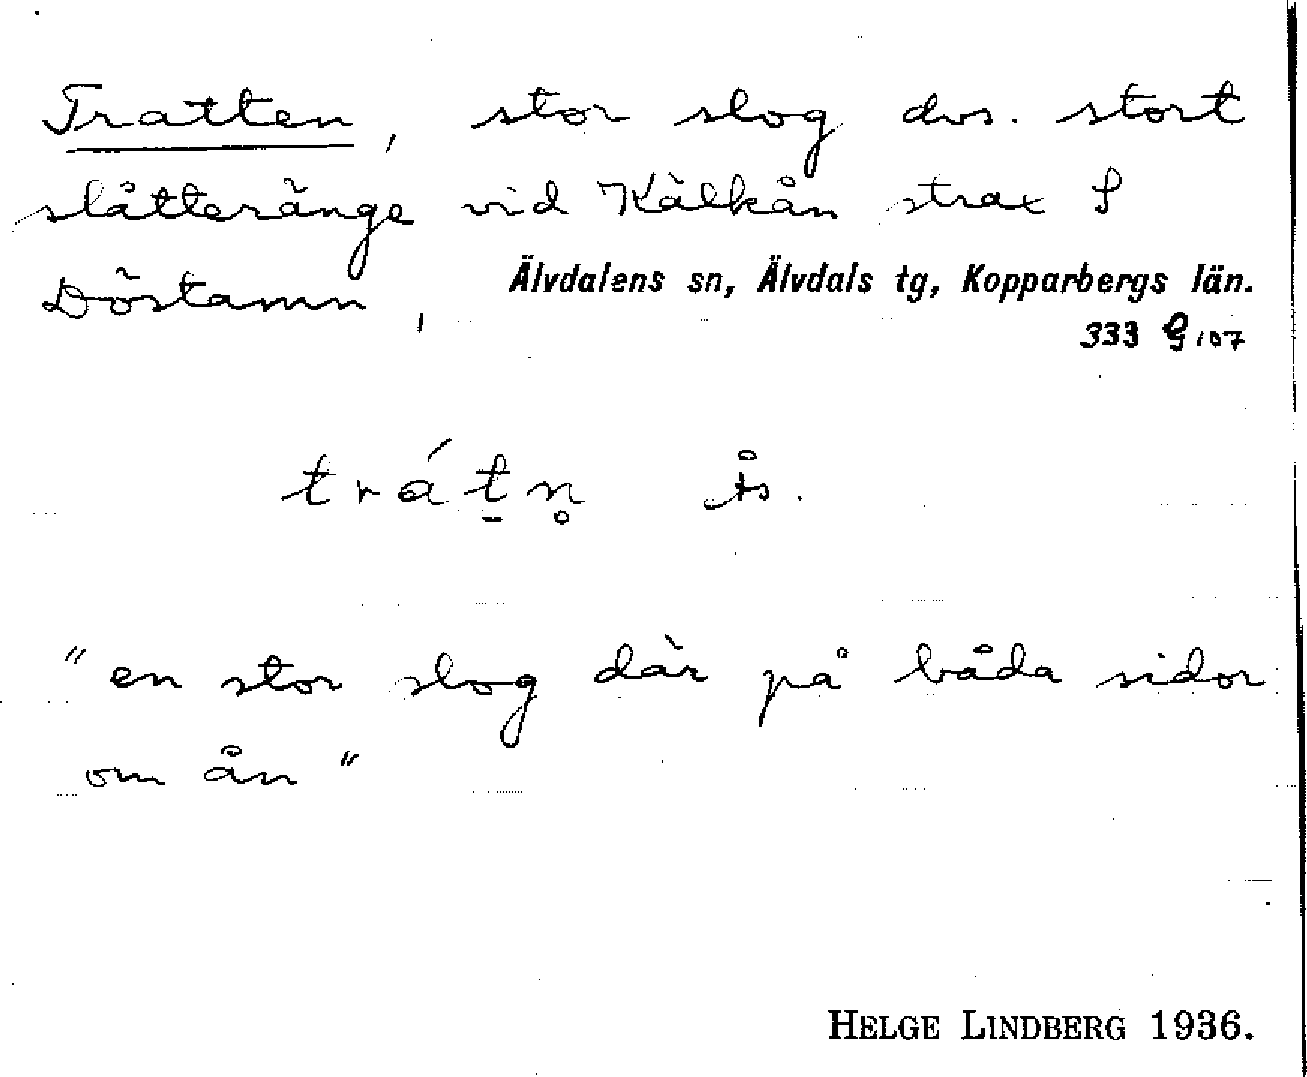 Tratten, stor slog dvs. stort
slåtteränge vid Kälkån strax S
Döstamn,
Älvdalens sn, Älvdals tg, Kopparbergs län.
333 G 107
trát̠n̥ Ås.
"en stor slog där på båda sidor
om ån"
HELGE LINDBERG 1936.